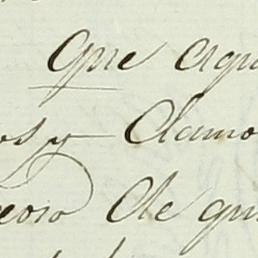 Que aqu
os y clamo
eoso de qui